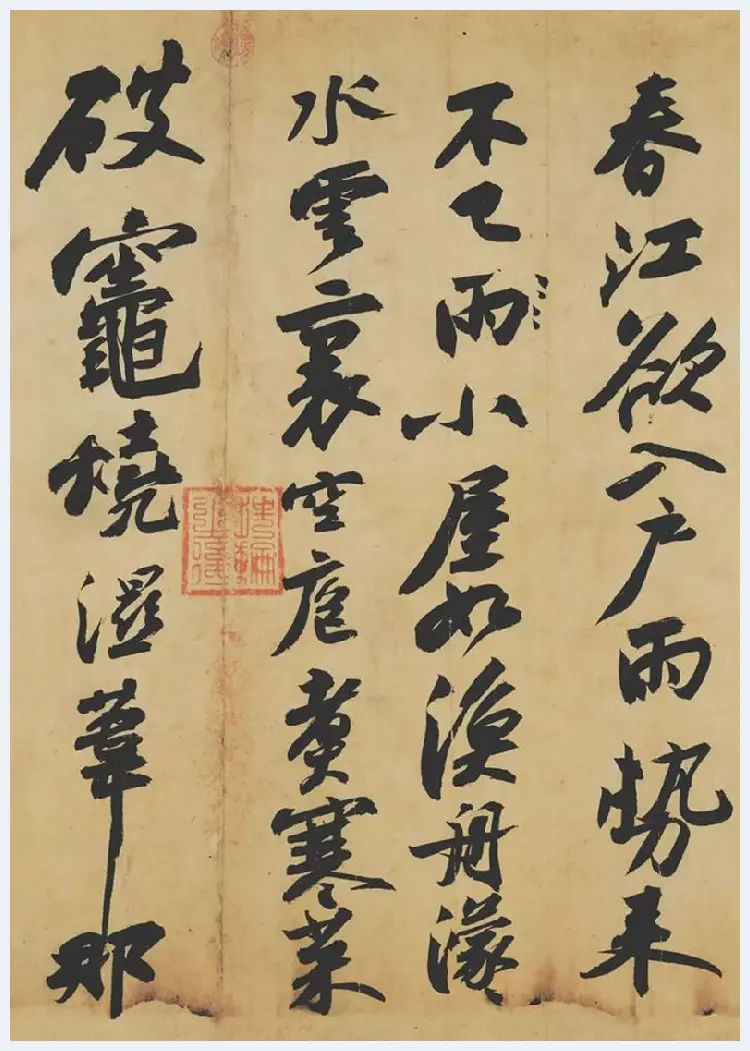 春江欲入戶雨勢来
不已雨小屋如漁舟濛〻
水雲裏空庖煑寒菜
破竈燒濕葦那